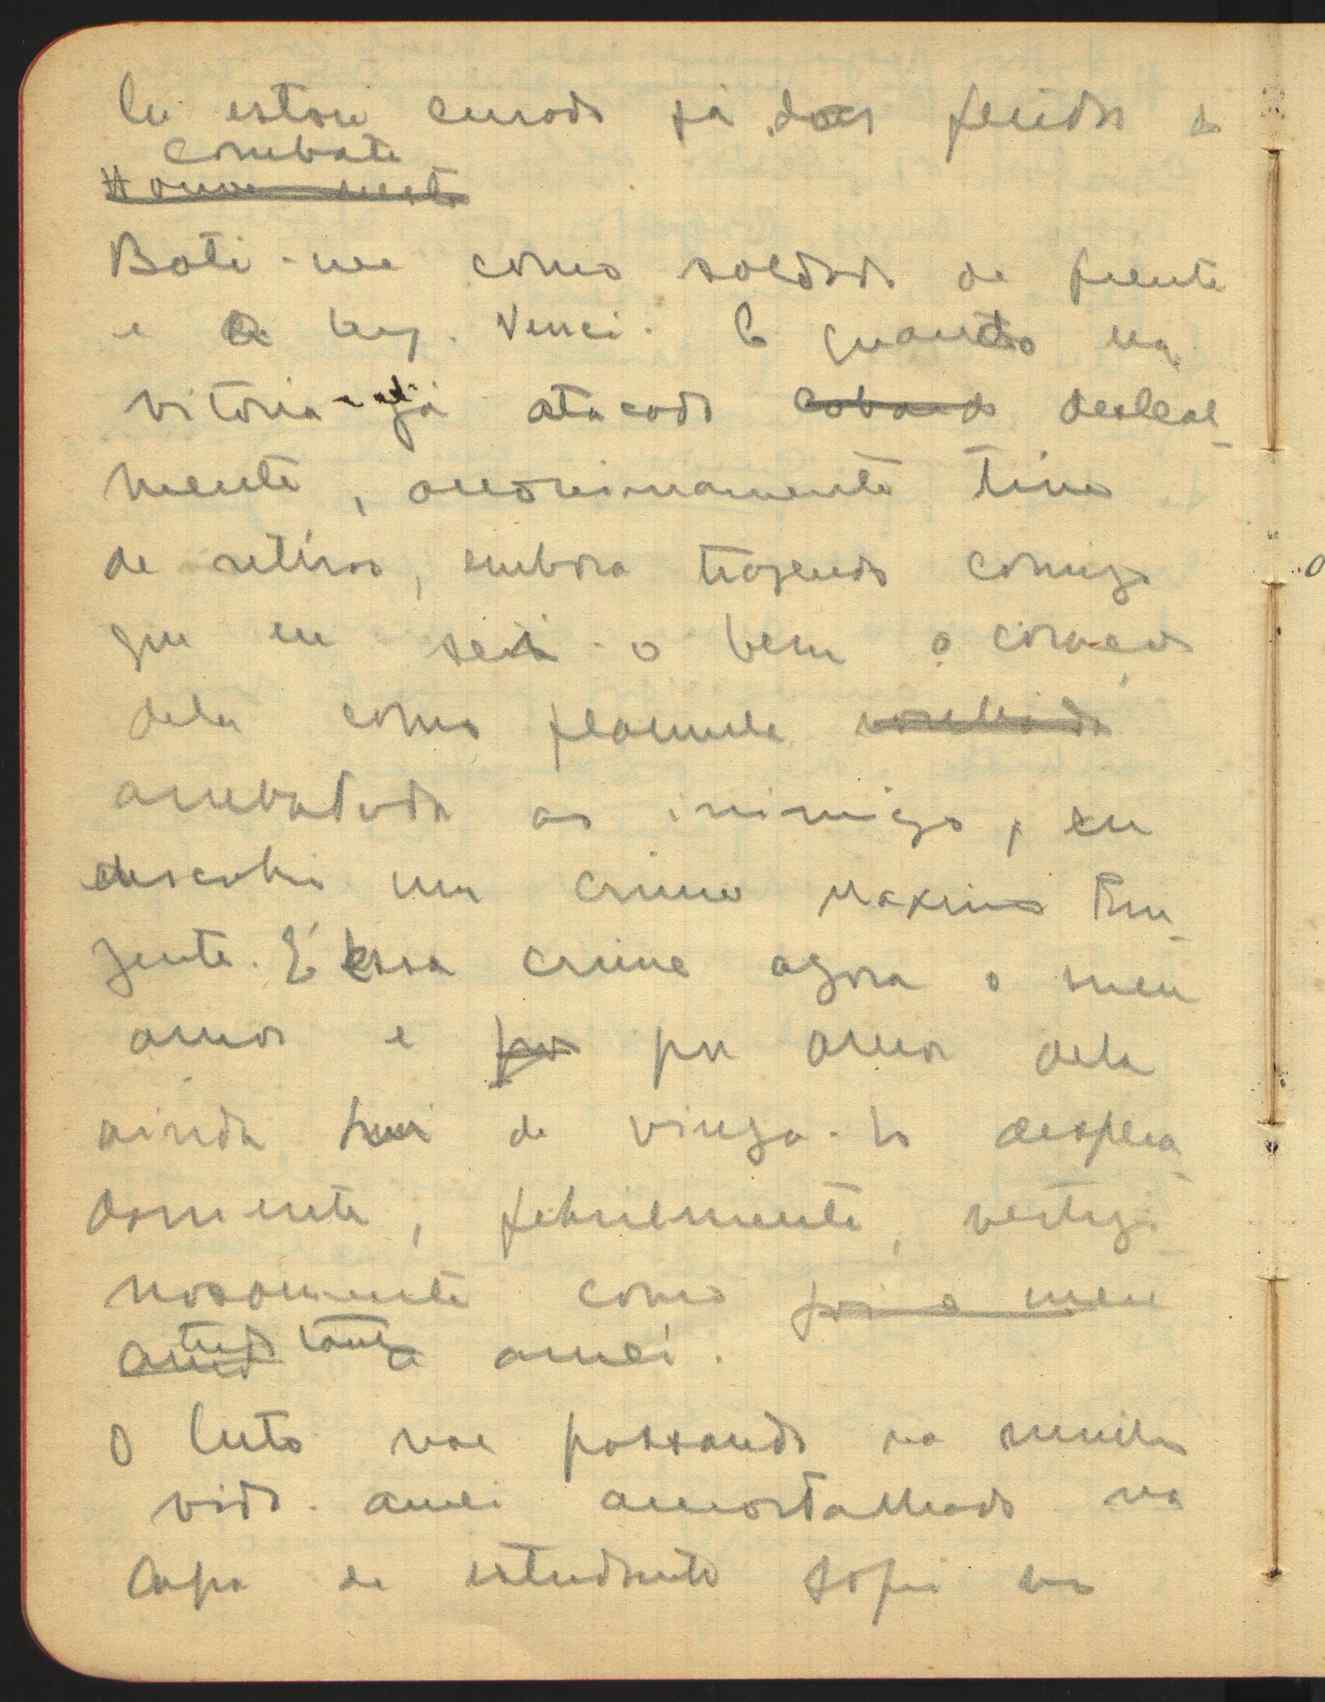 Eu estou curado já das feridas do
combate
Bati-me como soldado de frente
e a luz. Venci. E quando na
vitoria - já atacado cobardo desleal-
mente, anonimamente tive
de retirar, embora trazendo comigo
que eu sei - o bem o coração
dela como flamula
arrebatada ao inimigo, eu
descobri um crime maximo Pun-
gente. É essa crime agora o meu
amor e por por amor dela
ainda hei de vinga-lo desapiea-
damente, febrilmente, vertigi
nosamente como foi o meu
amor tudo tanto a amei.
O luto vae passando na minha
vida. amei amortalhado na
Capa de estudante sofri na